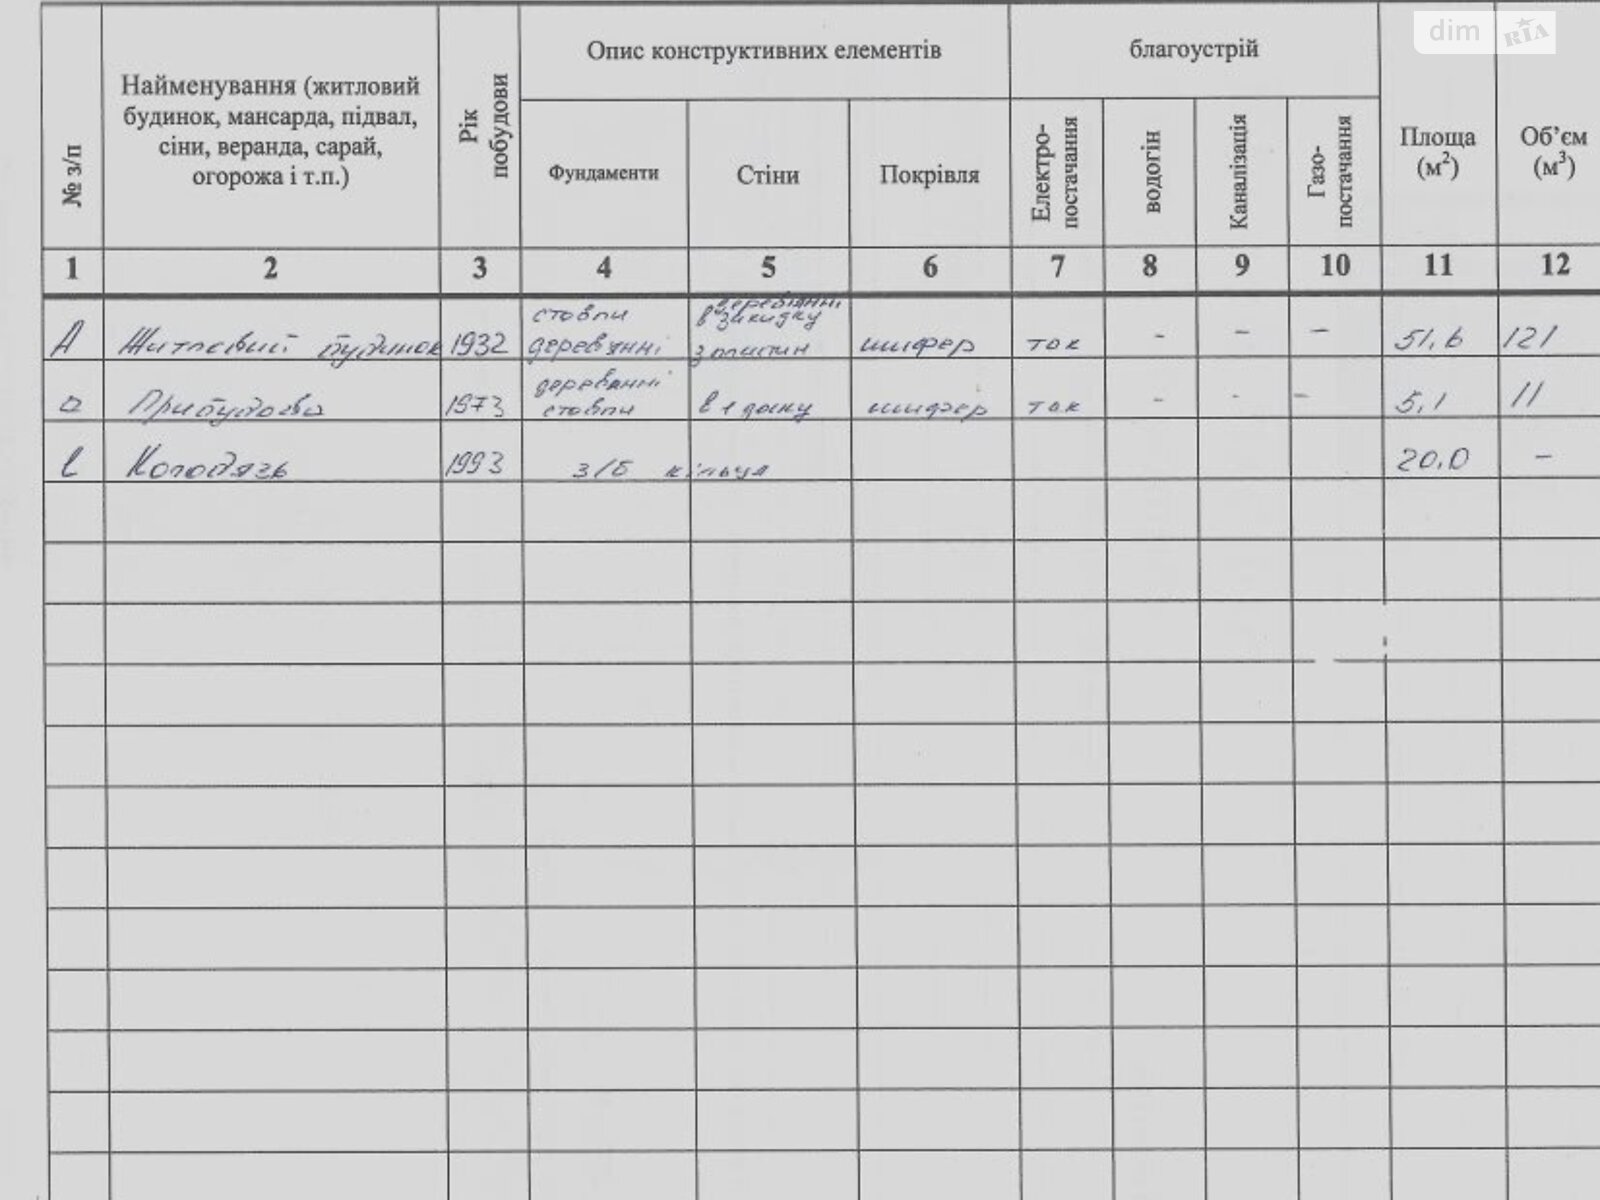 dim RIA
№ з/п
Найменування (житловий
будинок, мансарда, підвал,
сіни, веранда, сарай,
огорожа і т.п.)
Рік
побудови
Опис конструктивних елементів
Фундаменти
Стіни
Покрівля
благоустрій
Електро-
постачання
водогін
Каналізація
Газо-
постачання
Площа
(м²)
Об’єм
(м³)
1 2 3 4 5 6 7 8 9 10 11 12
А Житловий будинок 1932 стовпи деревянні деревянні в закидку з пластин шифер ток - - - 51,6 121
а Прибудова 1973 деревянні стовпи в 1 дошку шифер ток - - - 5,1 11
Колодязь 1993 з/б кільця 20.0 -